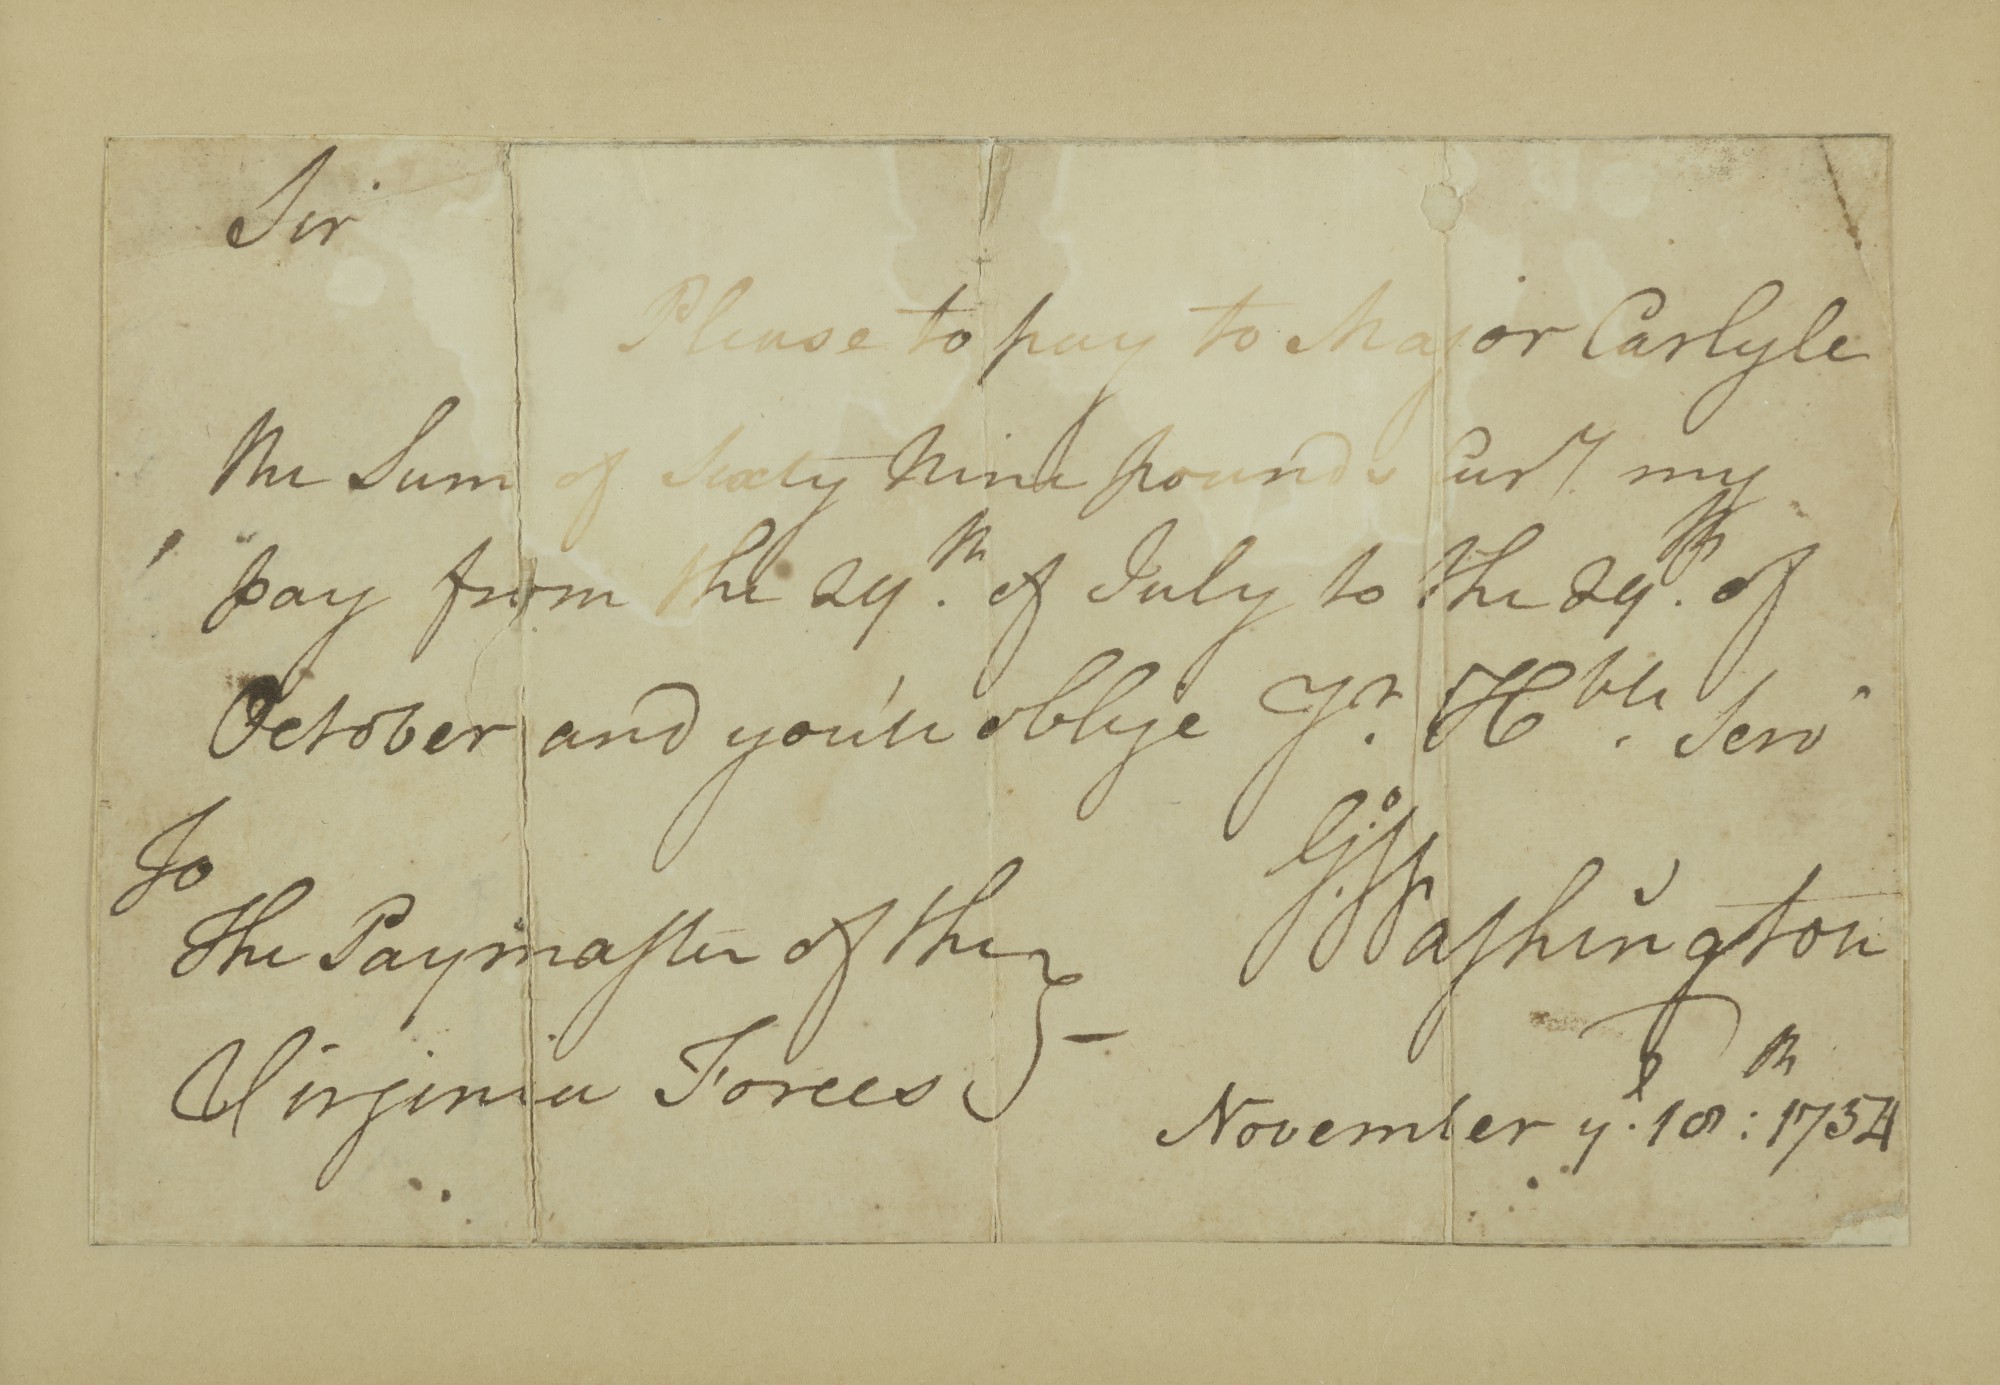 Sir
Please to pay to Major Carlyle
the Sum of Sixty Nine pounds Curr.y my
pay from the 29th. of July to the 29th. of
October and you'll oblige Yr. Hble. Serv
Go: Washington
To
the Paymaster of the
Virginia Forces
November ye. 18th: 1754